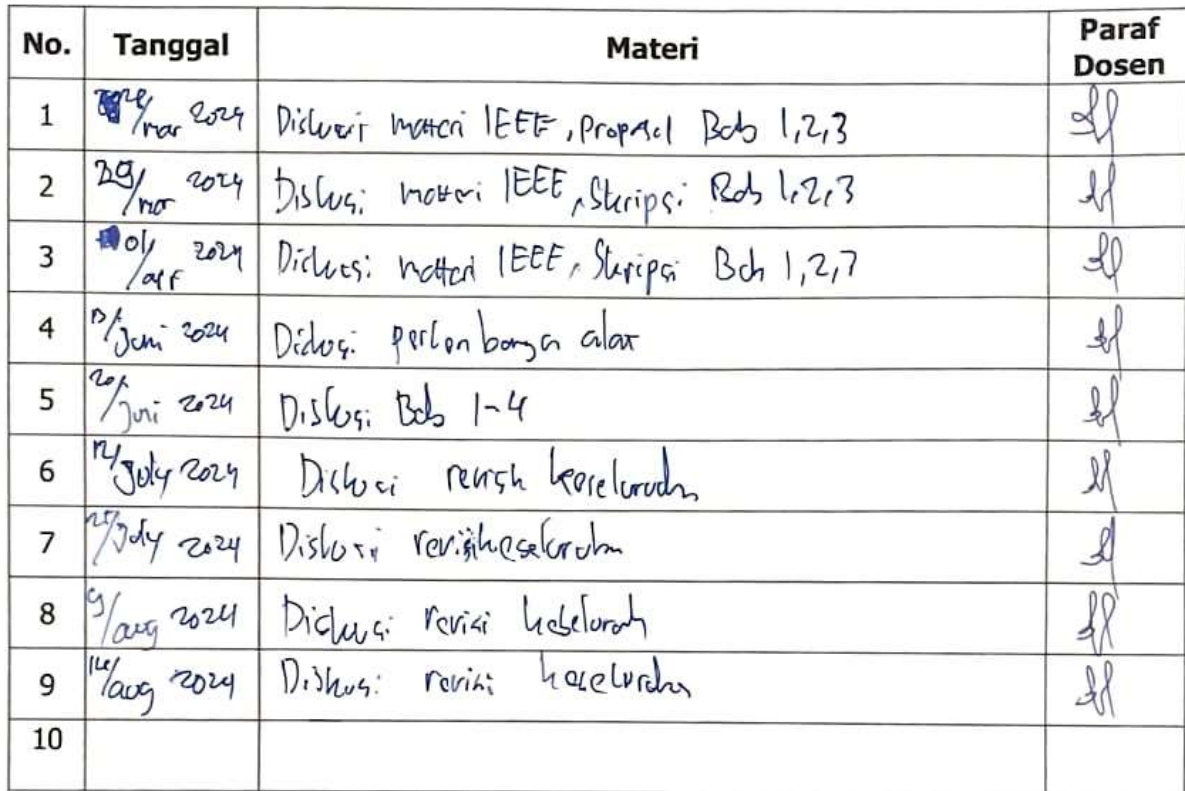 No. Tanggal Materi Paraf Dosen
1 /mar 2024 Diskusi materi IEEE, Proposal Bab 1,2,3
2 29/mar 2024 Diskusi materi IEEE, Skripsi Bab 1,2,3
3 01/apr 2024 Diskusi materi IEEE, Skripsi Bab 1,2,3
4 /Juni 2024 Diskusi perkembangan alat
5 20/Juni 2024 Diskusi Bab 1-4
6 12/July 2024 Diskusi revisi keseluruhan
7 25/July 2024 Diskusi revisi keseluruhan
8 9/aug 2024 Diskusi revisi keseluruhan
9 14/aug 2024 Diskusi revisi keseluruhan
10